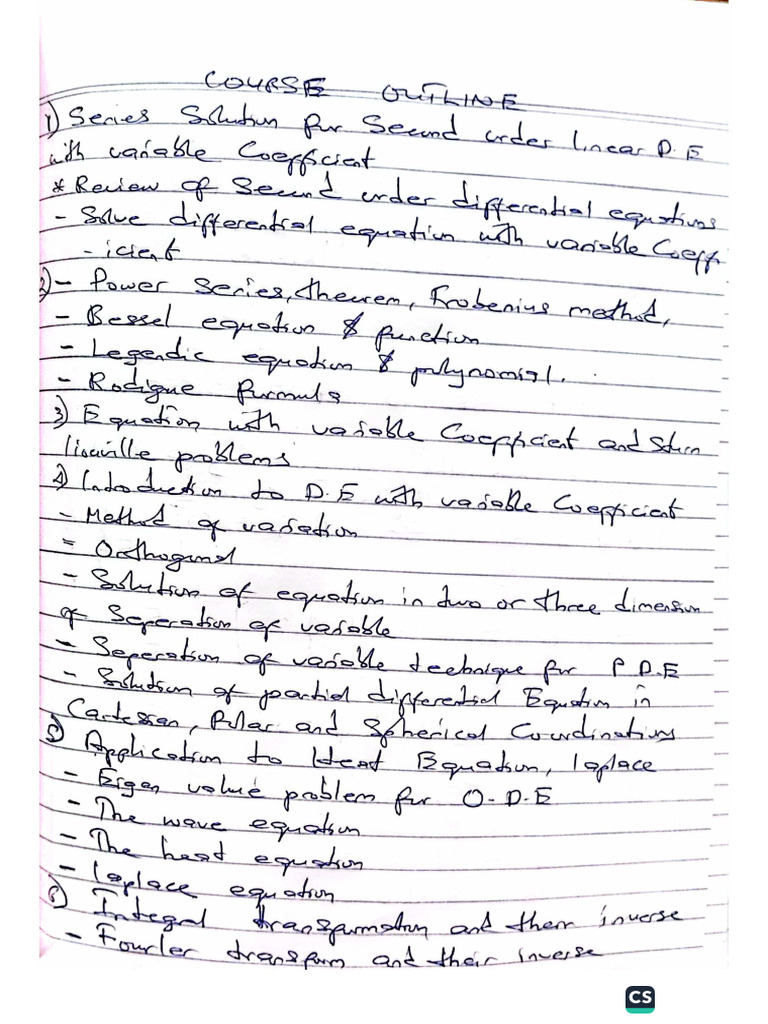 COURSE OUTLINE
1) Series Solution for Second order linear D.E
with variable Coefficient
* Review of Second order differential equations
- Solve differential equation with variable Coeff
- icient
2) - Power Series, theorem, Frobenius method,
- Bessel equation & function
- Legendic equation & polynomial.
- Rodigue formula
3) Equation with variable Coefficient and Sturn
liouville problems
4) Introduction to D.E with variable Coefficient
- Method of variation
= Orthogonal
- Solution of equation in two or three dimension
of Seperation of variable
- Seperation of variable technique for P.D.E
- Solution of partial differential Equation in
Cartesian, Polar and Spherical Coordinations
5) Application to Heat Equation, laplace
- Eigen value problem for O.D.E
- The wave equation
- The heat equation
- laplace equation
6) Integral transformation and them inverse
- Fourier transform and their inverse
CS